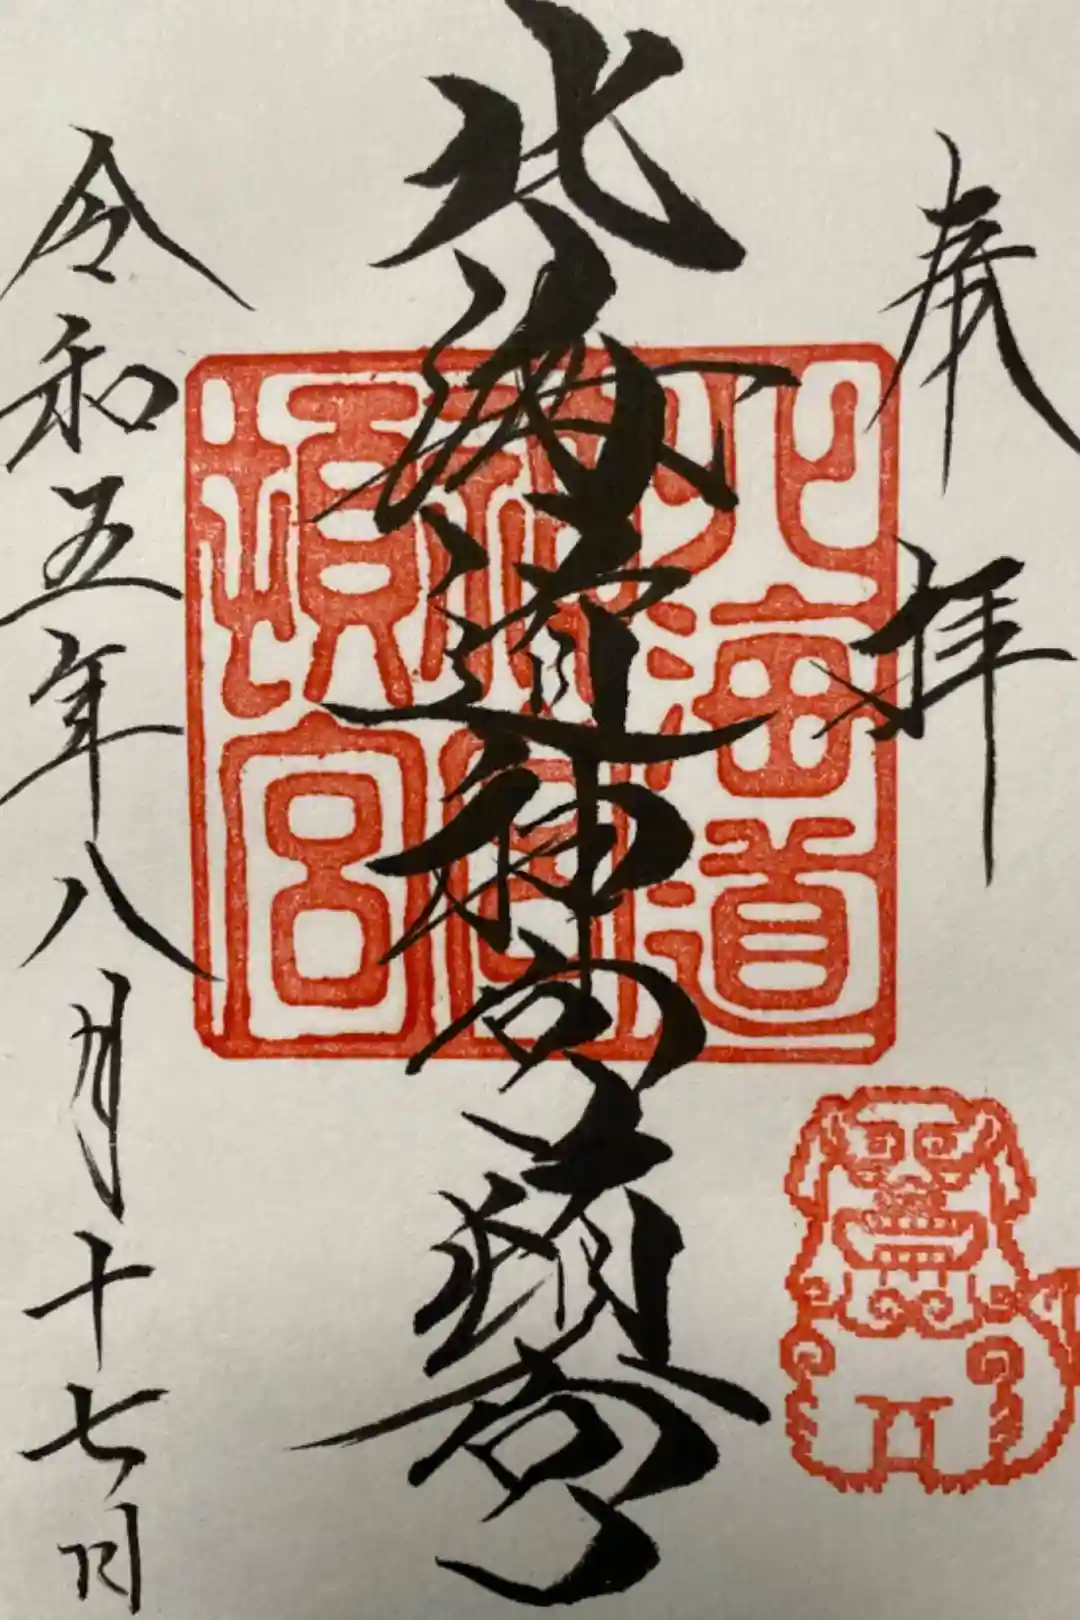 奉拝
北海道神宮頓宮
令和五年八月十七日
北海道
神宮
頓宮